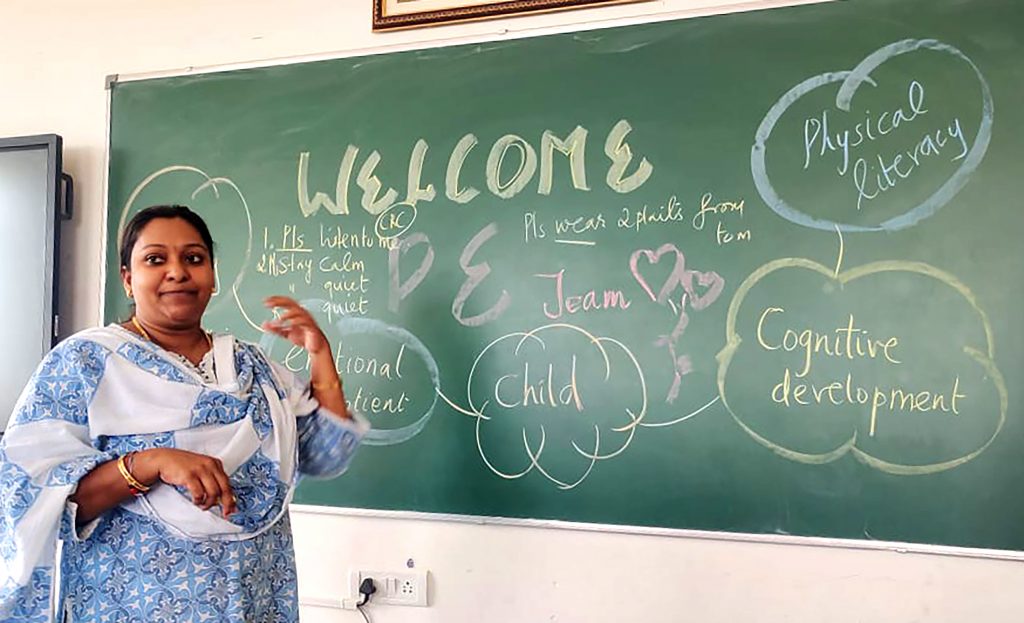 WELCOME
CRC
1. Pls listen to me
2. Pls stay calm
" quiet
quiet
Pls wear 2 plaits from
tom
PE
Team
Physical
literacy
Cognitive
development
Child